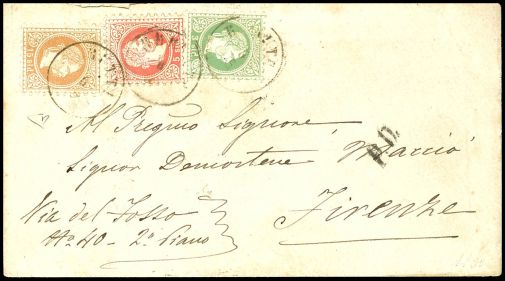 5 SLD
P.D.
Al Pregmo Signore
Signor Demostene Macciò
Via del Fosso
No 40 - 2o Piano
Firenze